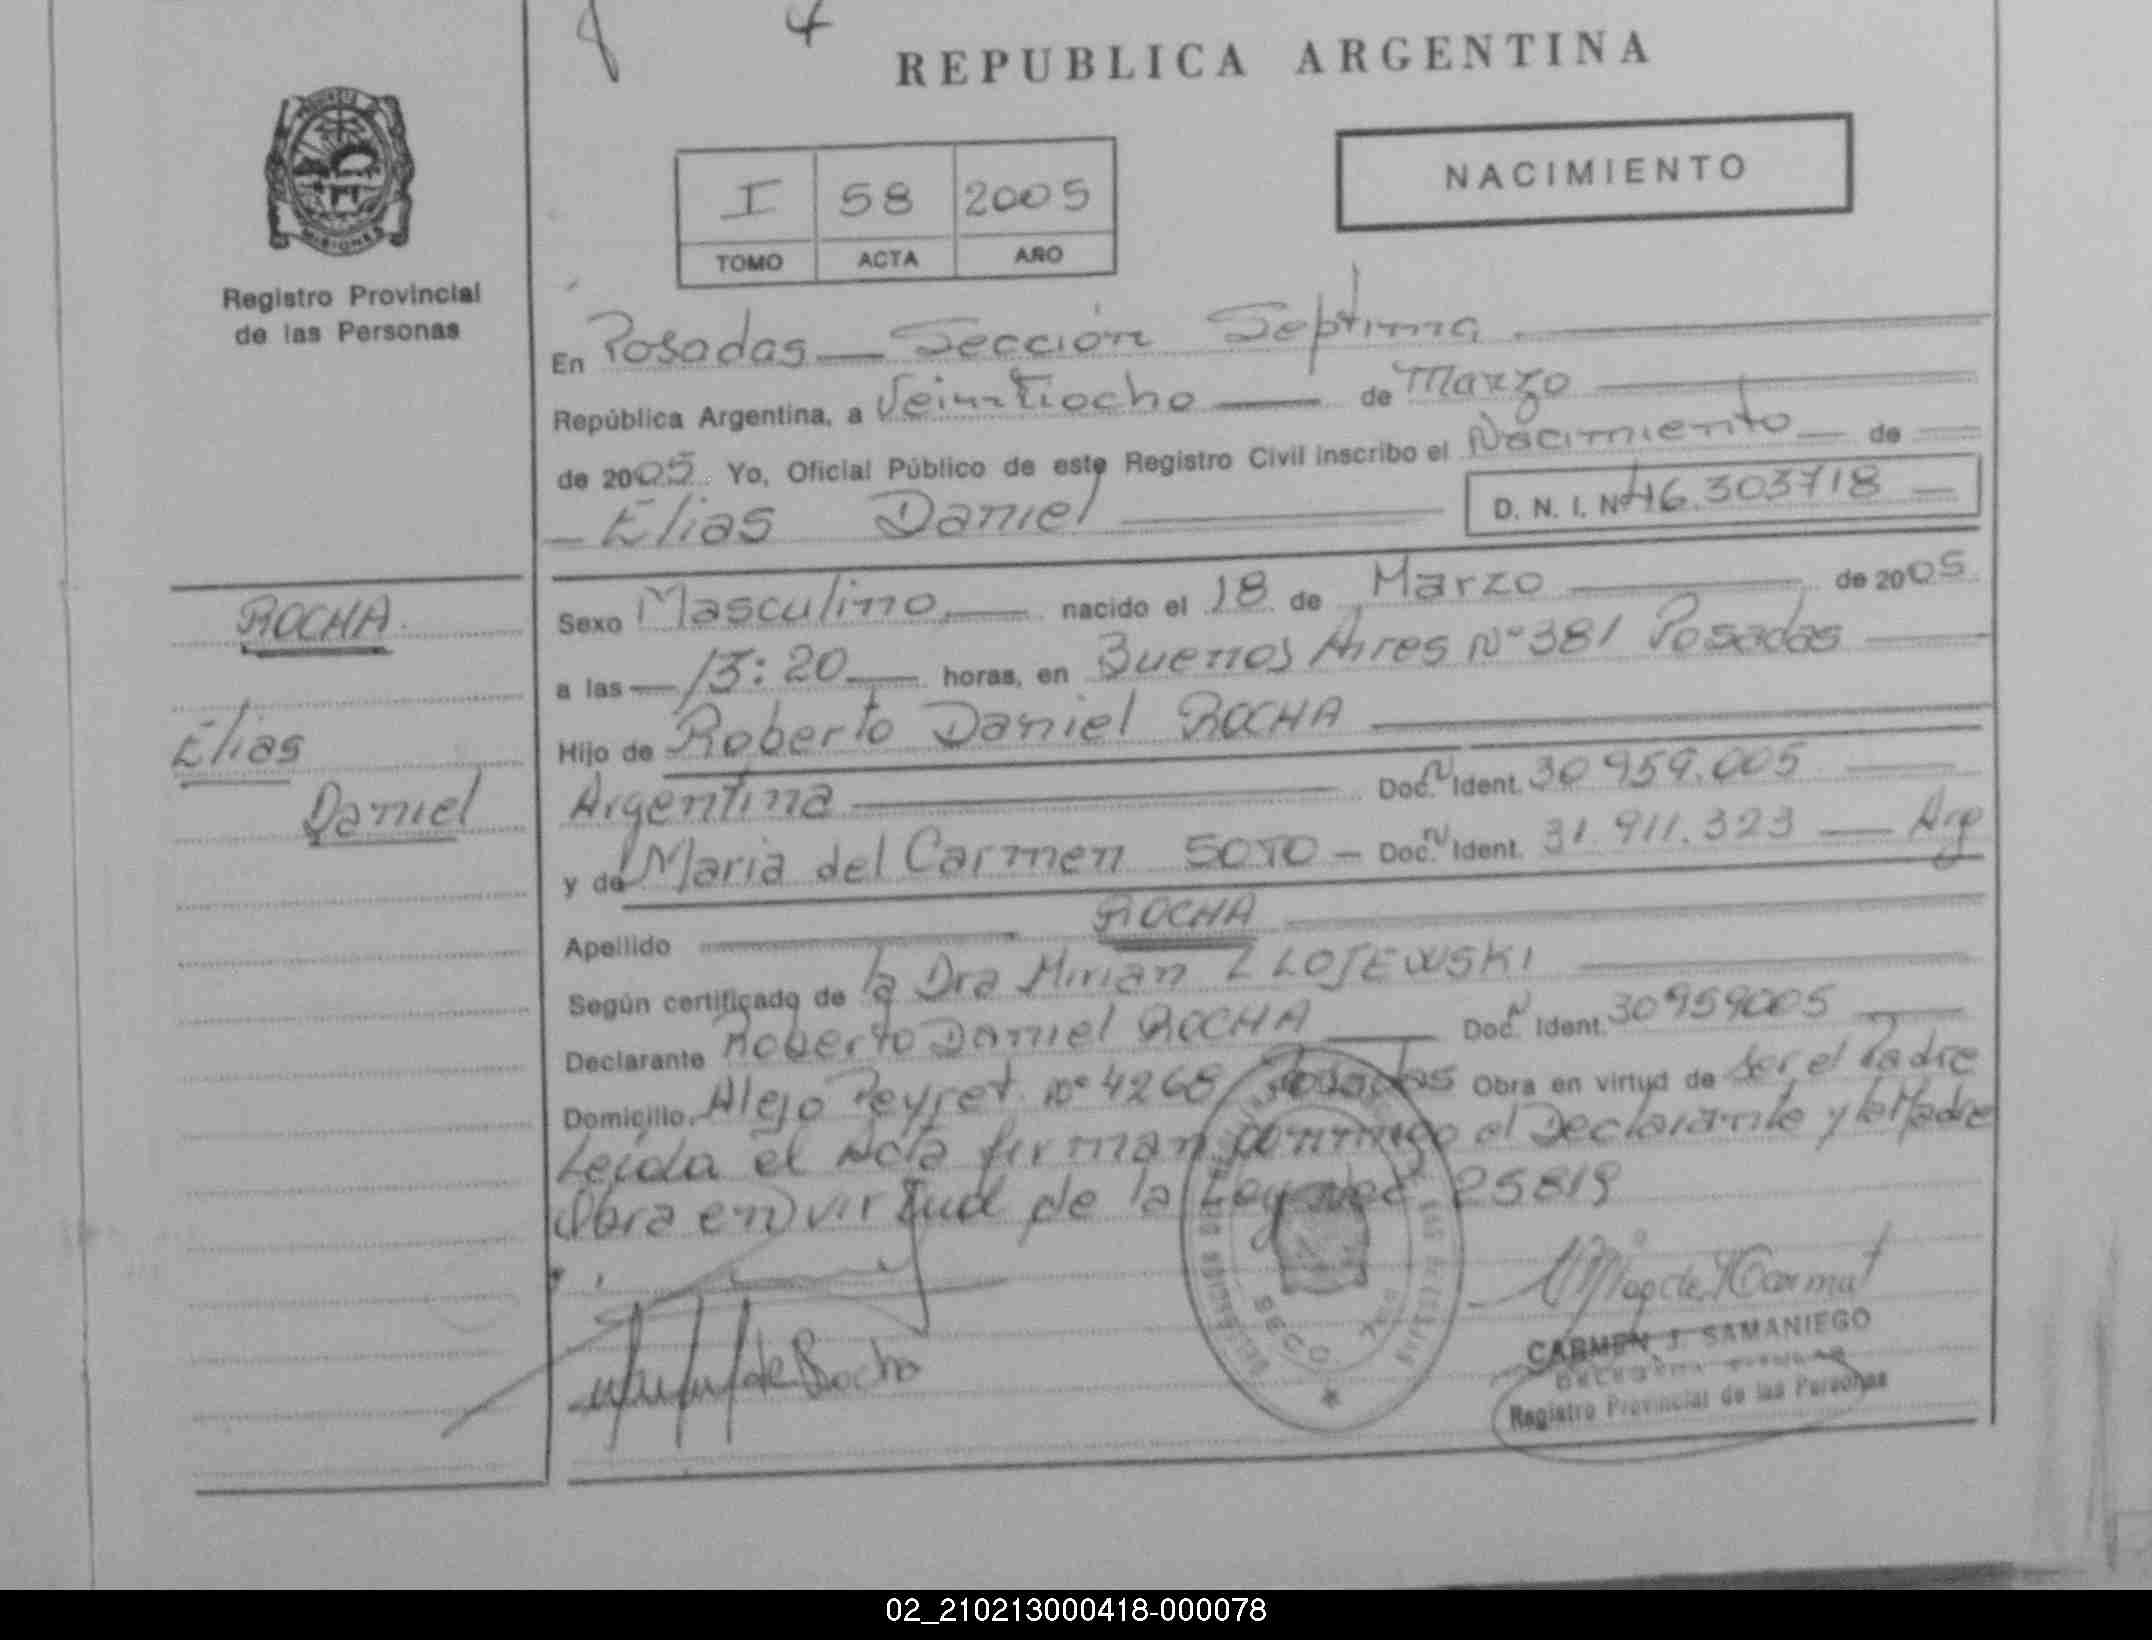 REPUBLICA ARGENTINA
MISIONES
Registro Provincial
de las Personas
I 58 2005
TOMO ACTA AÑO
NACIMIENTO
En Posadas — Sección Septima
República Argentina, a Veintiocho — de Marzo
de 2005. Yo, Oficial Público de este Registro Civil inscribo el Nacimiento — de
— Elias Daniel D. N. I. Nº 46.303718 —
ROCHA
Elias
Daniel
Sexo Masculino — nacido el 18 de Marzo — de 2005
a las — 13:20 — horas, en Buenos Aires Nº 381 Posadas —
Hijo de Roberto Daniel ROCHA —
Argentina — Doc. N Ident. 30 959.005 —
y de Maria del Carmen SOTO — Doc. N Ident. 31.911.323 — Arg
Apellido — ROCHA —
Según certificado de la Dra Mirian —
Declarante Roberto Daniel ROCHA — Doc. N Ident. 30959005 —
Domicilio Alejo Peyret Nº 4268 Posadas Obra en virtud de Ser el Padre
Leida el Acta firman conmigo el Declarante y la Madre
Obra en virtud de la Ley 25819
de Rocha
CARMEN J. SAMANIEGO
Registro Provincial de las Personas
02_210213000418-000078